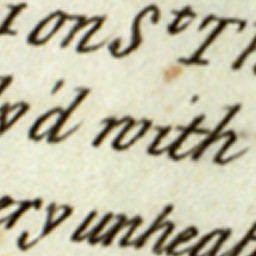 on S^t T
y'd with
ery unhea